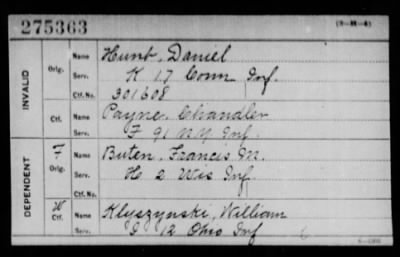 275363 (3-M-4)
INVALID
Orig. Name Hunt, Daniel
Serv. K 17 Conn Inf.
Ctf. No. 301608
Ctf. Name Payne, Chandler
Serv. F 91 N.Y. Inf.
DEPENDENT
F Orig. Name Buten, Francis M.
Serv. H 2 Wis Inf.
Ctf. No.
W Ctf. Name Klyszynski, William
Serv. G 12 Ohio Inf